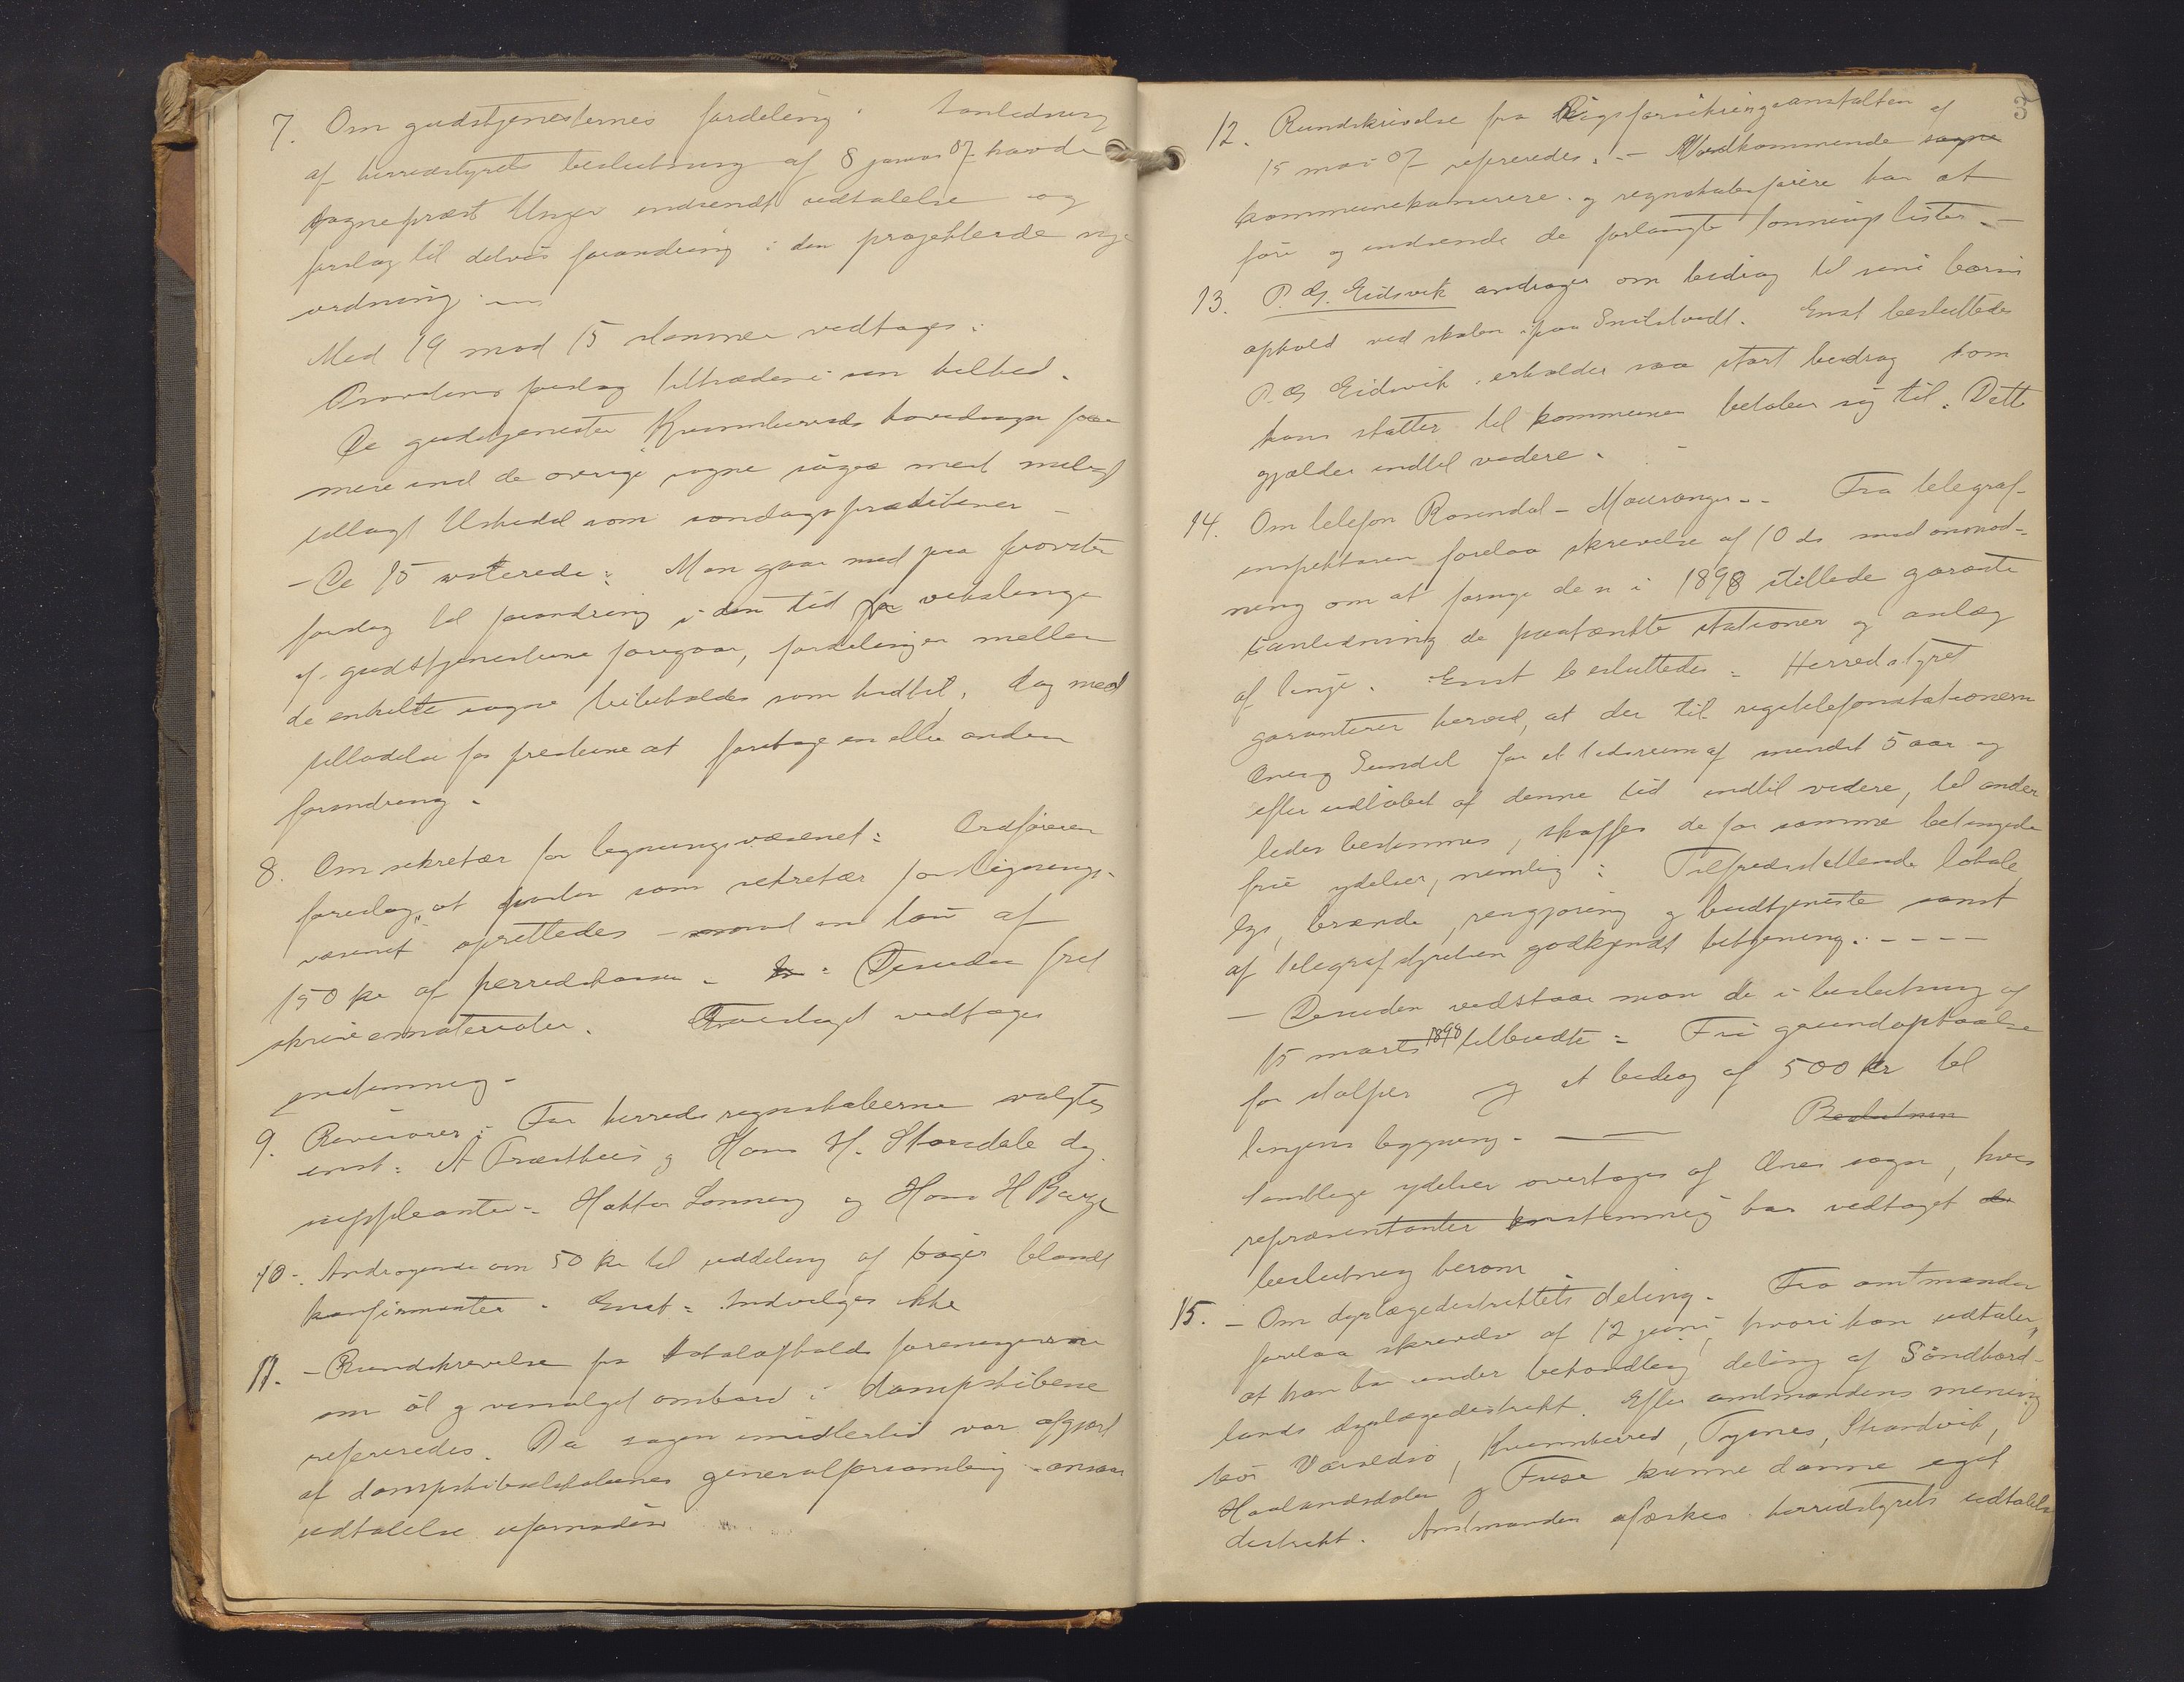 7. Om gudstjenesternes fordeling. I anledning
af herredstyrets beslutning af 8 januar 07 havde
sogneprest Unger indsendt udtalelse og
forslag til delvis forandring i den projekterede nye
ordning. —
Med 19 mod 15 stemmer vedtages:
Provstens forslag tiltrædes i sin helhed.
De gudstjenester Kvinnherreds hovedsogn faar
mere end de øvrige sogne søges mest muligt
tillagt Uskedal som søndagsprædikener —
— De 15 voterede: Man gaar med paa provstens
forslag til forandring i den tid for vekslinge
af gudstjenesterne foregaar, fordelingen mellem
de enkelte sogne bibeholdes som hidtil, dog med
tilladelse for presterne at foretage en eller anden
forandring.
8. Om sekretær for ligningsvæsenet: Ordføreren
foreslog, at posten som sekretær for lignings-
væsenet oprettedes – med en løn af
150 kr af herredskassen. Desuden frit
skrivematerialer. Forslaget vedtages
enstemmig.
9. Revisorer: For herredsregnskaberne valgtes
enst: A Præsthus og Hans H. Skorsdale dy.
suppleanter – Haktor Lonning og Hans H Berge
10. Andragende om 50 kr til uddeling af bøger blandt
konfirmanter. Enst: Indvilges ikke
11. – Rundskrivelse fra totalafholdsforeningerne
om øl og vinsalget ombord i dampskibene
refereredes. Da sagen imidlertid var afgjort
af dampskibsselskabernes generalforsamling ansaaes
udtalelse ufornøden
3
12. Rundskrivelse fra Rigsforsikringsanstalten af
15 mai 07 refereredes. – Vedkommende sogne
kommunekasserere og regnskabsførere har at
føre og indsende de forlangte lønningslister. –
13. P. G. Eidsvik andrager om bidrag til sine børns
ophold ved skolen paa Snilstvedt. Enst besluttedes
P. G Eidsvik erholder saa stort bidrag som
hans skatter til kommunen beløber sig til. Dette
gjælder indtil videre. –
14. Om telefon Rosendal – Mauranger. – Fra telegraf-
inspektøren forelaa skrivelse af 10 ds med anmod-
ning om at fornye den i 1898 stillede garanti
i anledning de paatænkte stationer og anlæg
af linje. Enst besluttedes: Herredstyret
garanterer herved, at der til rigstelefonstationerne
Ænes og Sundal for et tidsrum af mindst 5 aar og
efter udløbet af denne tid indtil videre, til ander
ledes bestemmes, skaffes de for samme betingede
frie ydelser, nemlig: Tilfredsstillende lokale,
lys, brænde, rengjøring og budtjeneste samt
af telegrafstyrelsen godkjendt betjening. – – – –
– Desuden vedstaar man de i beslutning af
15 marts 1898 tilbudte: Fri grundoptagelse
for stolper og et bidrag af 500 kr til
linjens bygning. —— Beslutnin
Samtlige ydelser overtages af Ænes sogn, hvis
repræsentanter enstemmig har vedtaget de
beslutning herom
15. – Om dyrlægedistriktets deling. Fra amtmanden
forelaa skrivelse af 12 juni, hvori han udtaler,
at han har under behandling deling af Søndhord-
lands dyrlægedistrikt. Efter amtmandens mening
bør Varaldsø, Kvinnherred, Tysnes, Strandvik,
Haalandsdalen og Fuse kunne danne eget
distrikt. Amtmanden afæsker herredstyrets udtalelse